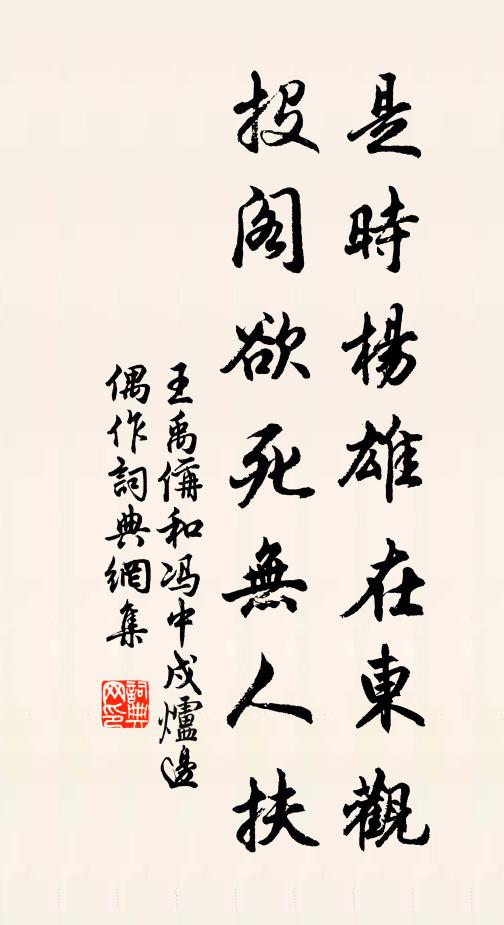 是時楊雄在東觀
投閣欲死無人扶
王禹偁和冯中戍爐邊
偶作詞典網集
詞典网印